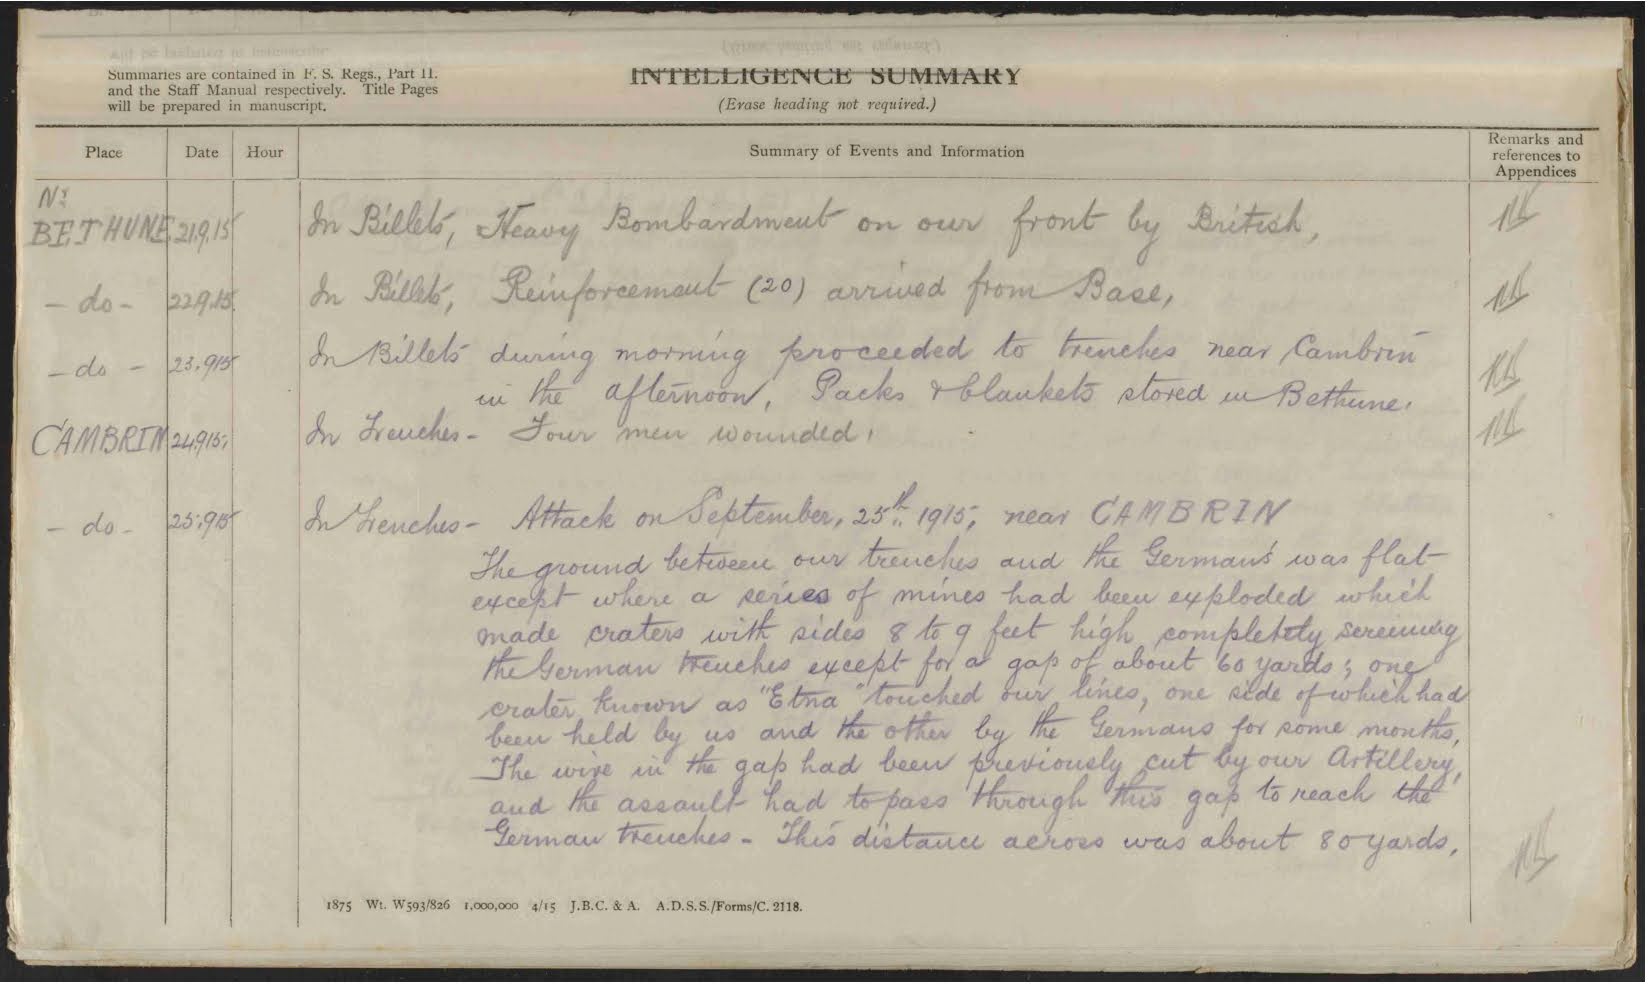 Summaries are contained in F. S. Regs., Part II.
and the Staff Manual respectively. Title Pages
will be prepared in manuscript.
INTELLIGENCE SUMMARY
(Erase heading not required.)
Place Date Hour Summary of Events and Information Remarks and references to Appendices
Nr
BETHUNE 21.9.15 In Billets, Heavy Bombardment on our front by British,
- do - 22.9.15 In Billets, Reinforcement (20) arrived from Base,
- do - 23.9.15 In Billets during morning proceeded to trenches near Cambrin
in the afternoon, Packs & blankets stored in Bethune.
CAMBRIN 24.9.15. In Trenches - Four men wounded.
- do - 25.9.15 In Trenches - Attack on September, 25th 1915, near CAMBRIN
The ground between our trenches and the German's was flat
except where a series of mines had been exploded which
made craters with sides 8 to 9 feet high completely screening
the German trenches except for a gap of about 60 yards; one
crater known as "Etna" touched our lines, one side of which had
been held by us and the other by the Germans for some months,
The wire in the gap had been previously cut by our Artillery,
and the assault had to pass through this gap to reach the
German trenches - This distance across was about 80 yards,
1875 Wt. W593/826 1,000,000 4/15 J.B.C. & A. A.D.S.S./Forms/C. 2118.